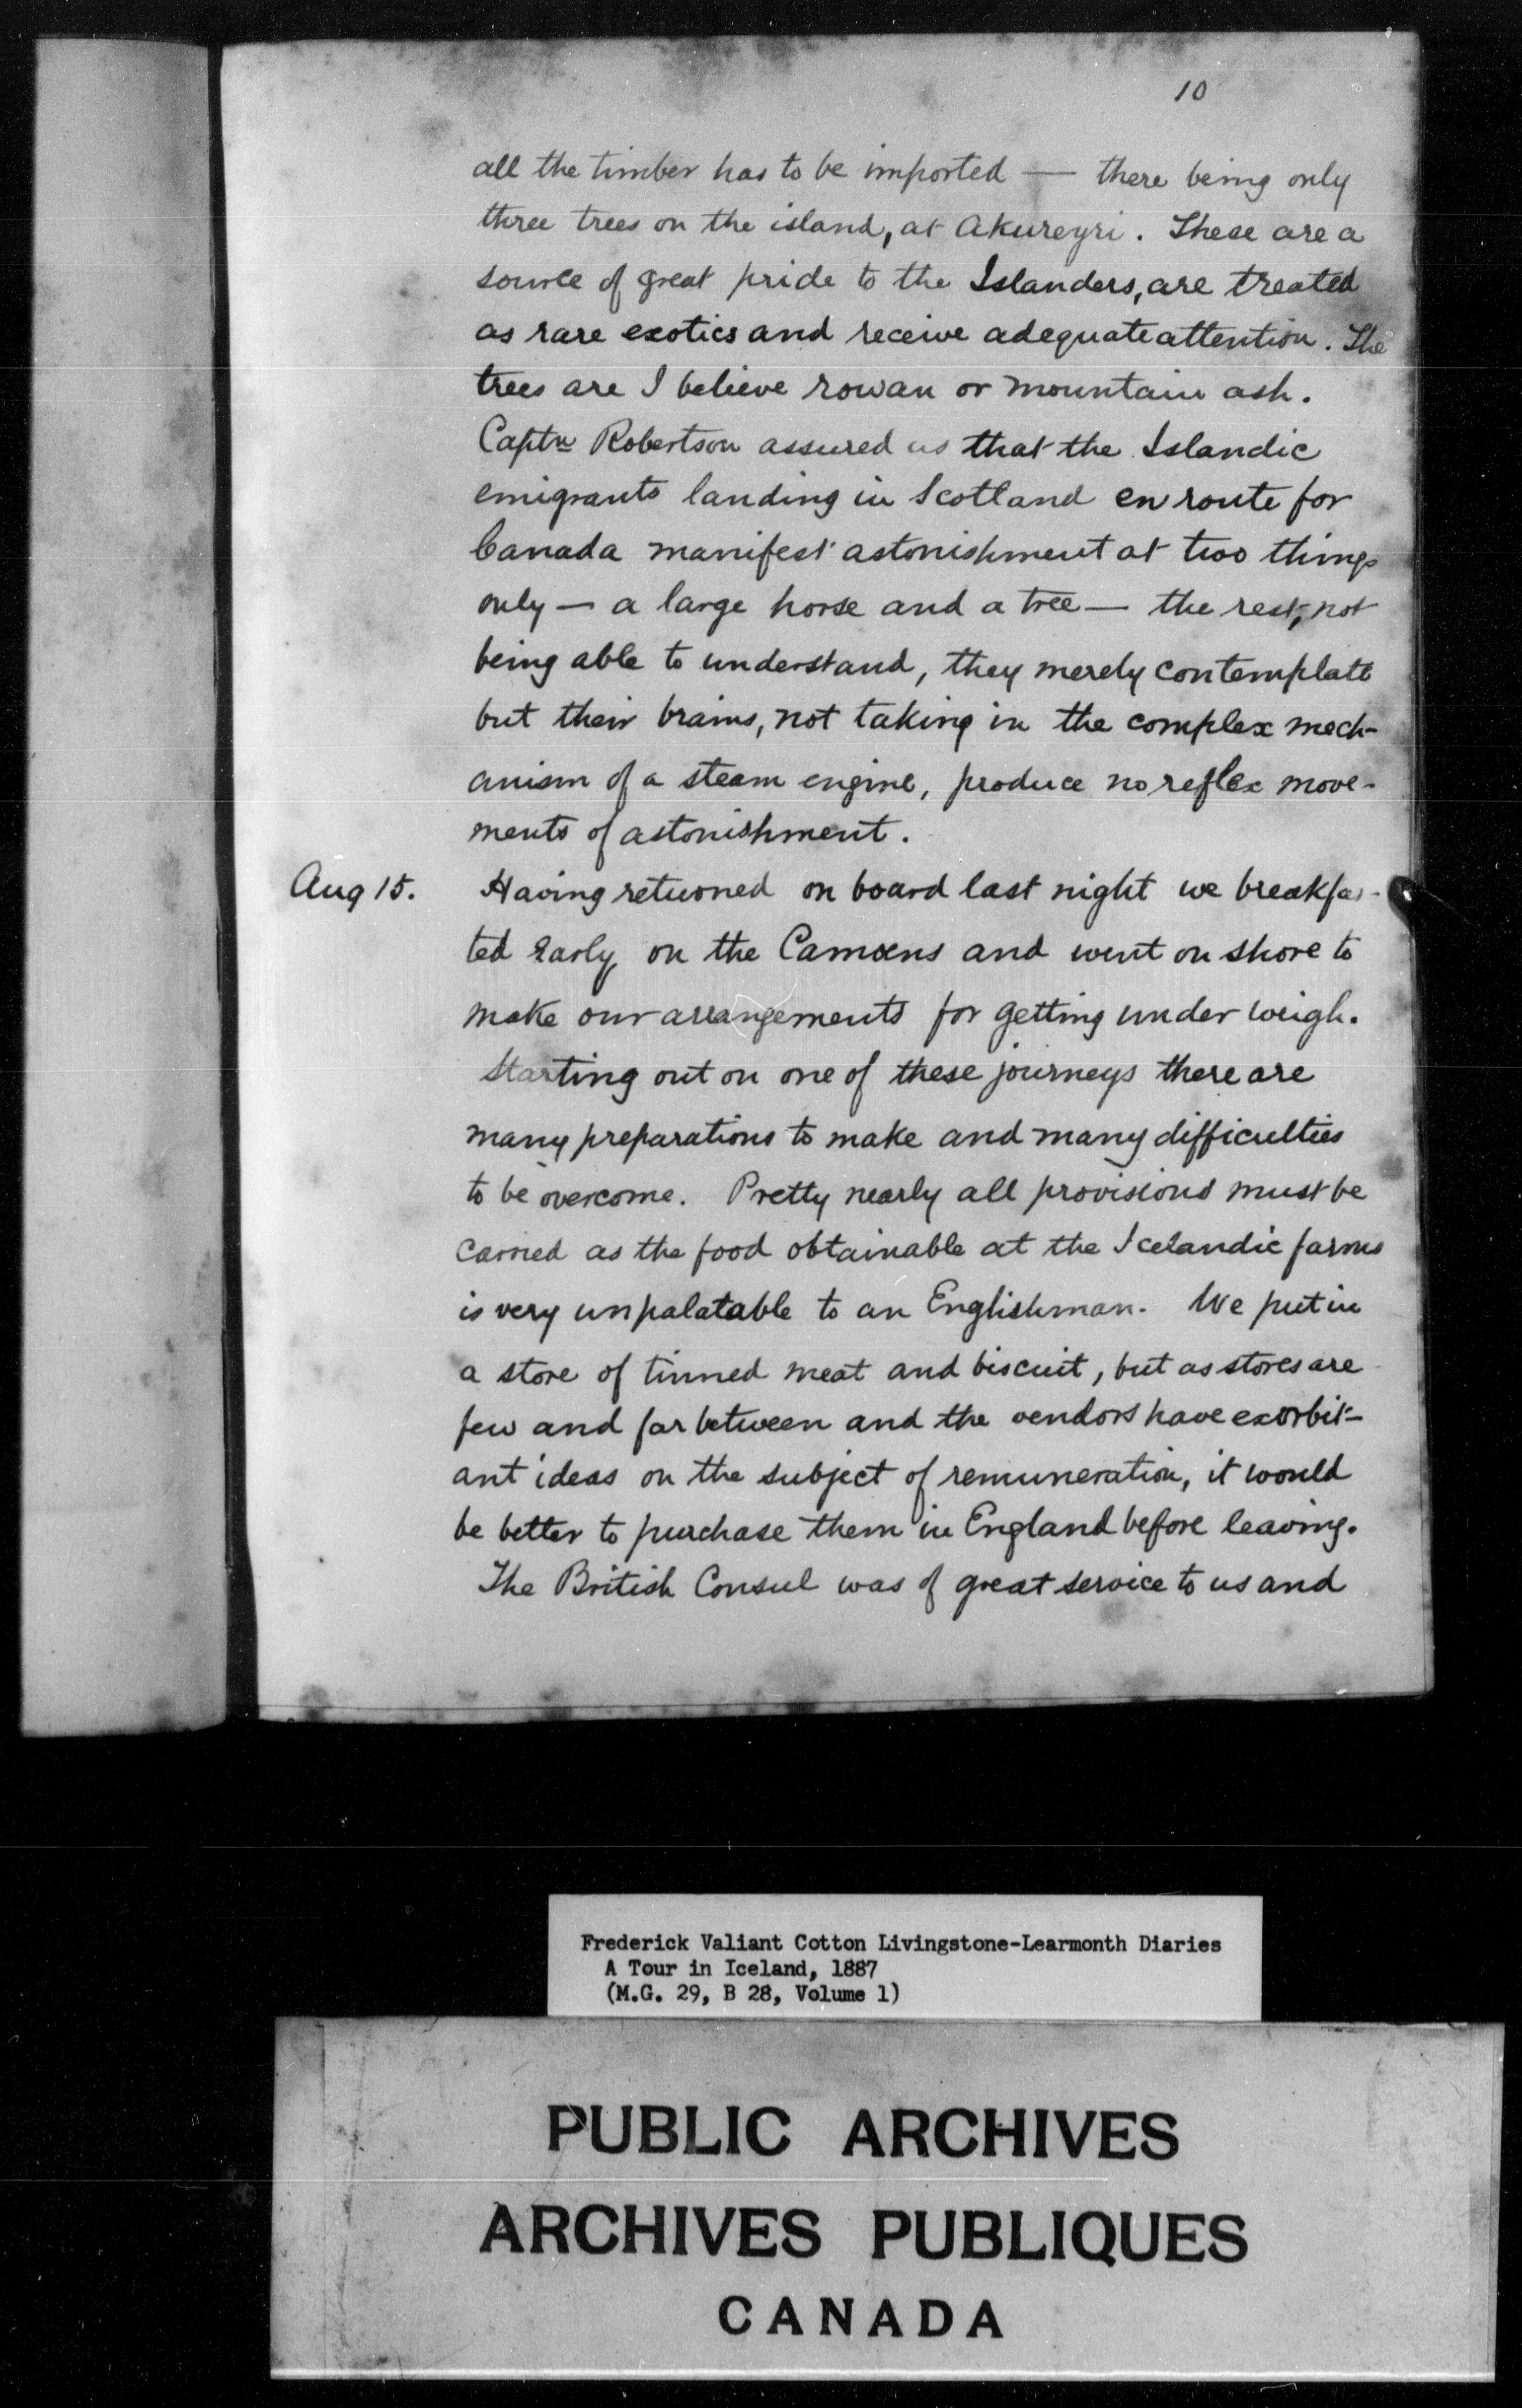 10
all the timber has to be imported — there being only
three trees on the island, at Akureyri. These are a
source of great pride to the Islanders, are treated
as rare exotics and receive adequate attention. The
trees are I believe rowan or mountain ash.
Captn Robertson assured us that the Islandic
emigrants landing in Scotland en route for
Canada manifest astonishment at two things
only — a large horse and a tree — the rest, not
being able to understand, they merely contemplate
but their brains, not taking in the complex mech-
anism of a steam engine, produce no reflex move-
ments of astonishment.
Aug 15. Having returned on board last night we breakfas-
ted early on the Camoens and went on shore to
make our arrangements for getting under weigh.
Starting out on one of these journeys there are
many preparations to make and many difficulties
to be overcome. Pretty nearly all provisions must be
carried as the food obtainable at the Icelandic farms
is very unpalatable to an Englishman. We put in
a store of tinned meat and biscuit, but as stores are
few and far between and the vendors have exorbit-
ant ideas on the subject of remuneration, it would
be better to purchase them in England before leaving.
The British Consul was of great service to us and
Frederick Valiant Cotton Livingstone-Learmonth Diaries
A Tour in Iceland, 1887
(M.G. 29, B 28, Volume 1)
PUBLIC ARCHIVES
ARCHIVES PUBLIQUES
CANADA